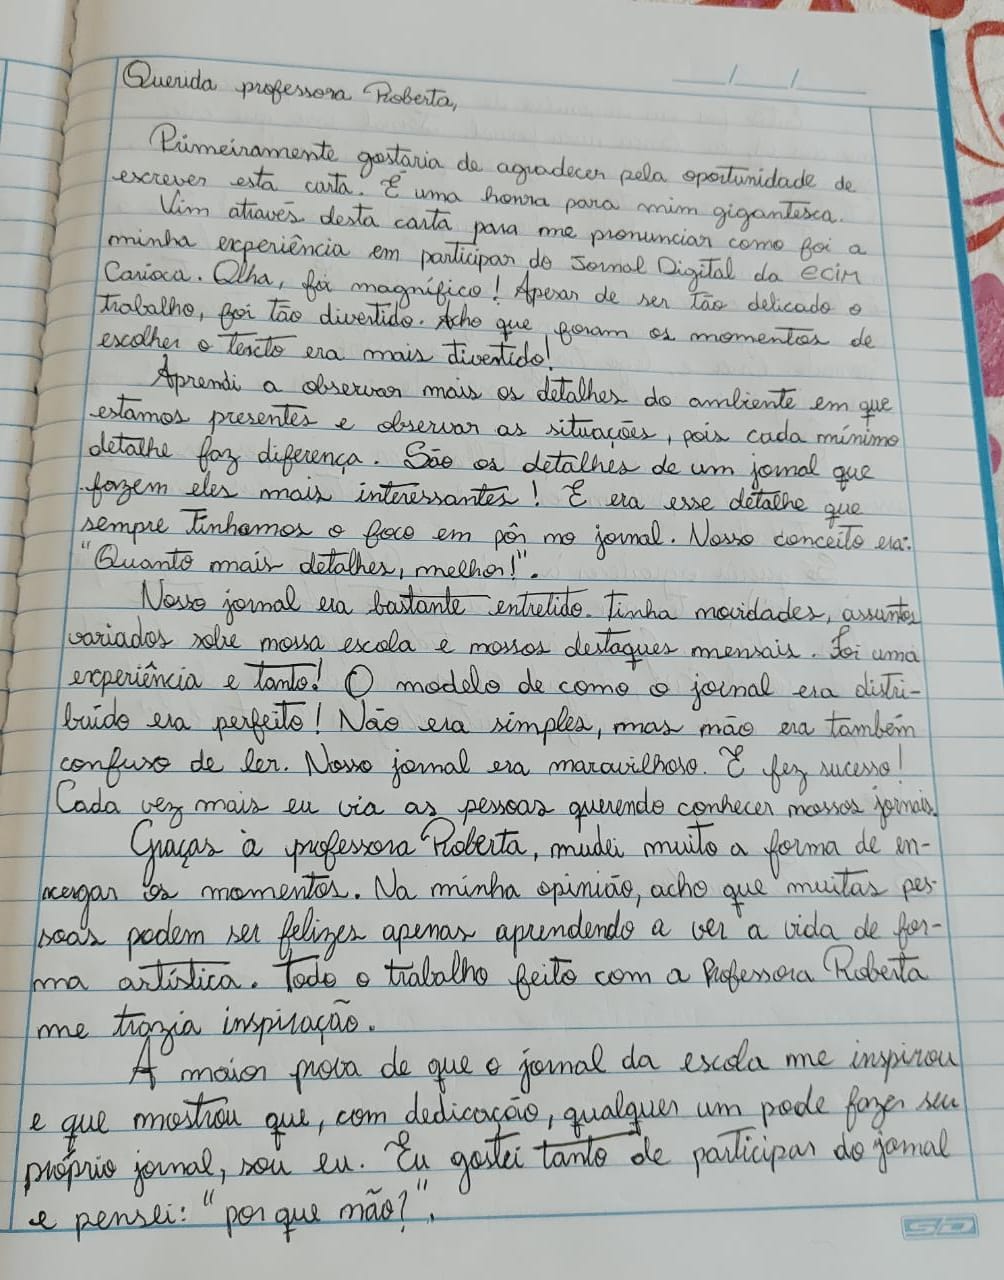 __/__/__
Querida professora Roberta,
Primeiramente gostaria de agradecer pela oportunidade de
escrever esta carta. É uma honra para mim gigantesca.
Vim através desta carta para me pronunciar como foi a
minha experiência em participar do Jornal Digital da ecim
Carioca. Olha, foi magnífico! Apesar de ser tão delicado o
trabalho, foi tão divertido. Acho que foram os momentos de
escolher o texto era mais divertido!
Aprendi a observar mais os detalhes do ambiente em que
estamos presentes e observar as situações, pois cada mínimo
detalhe faz diferença. São os detalhes de um jornal que
fazem eles mais interessantes! E era esse detalhe que
sempre tinhamos o foco em pôr no jornal. Nosso conceito era:
"Quanto mais detalhes, melhor!".
Nosso jornal era bastante entretido. Tinha novidades, assuntos
variados sobre nossa escola e nossos destaques mensais. Foi uma
experiência e tanto! O modelo de como o jornal era distri-
buído era perfeito! Não era simples, mas não era também
confuso de ler. Nosso jornal era maravilhoso. E fez sucesso!
Cada vez mais eu via as pessoas querendo conhecer nossos jornais.
Graças à professora Roberta, mudei muito a forma de en-
xergar os momentos. Na minha opinião, acho que muitas pes-
soas podem ser felizes apenas aprendendo a ver a vida de for-
ma artística. Todo o trabalho feito com a Professora Roberta
me trazia inspiração.
A maior prova de que o jornal da escola me inspirou
e que mostrou que, com dedicação, qualquer um pode fazer seu
próprio jornal, sou eu. Eu gostei tanto de participar do jornal
e pensei: "por que não?".
SD